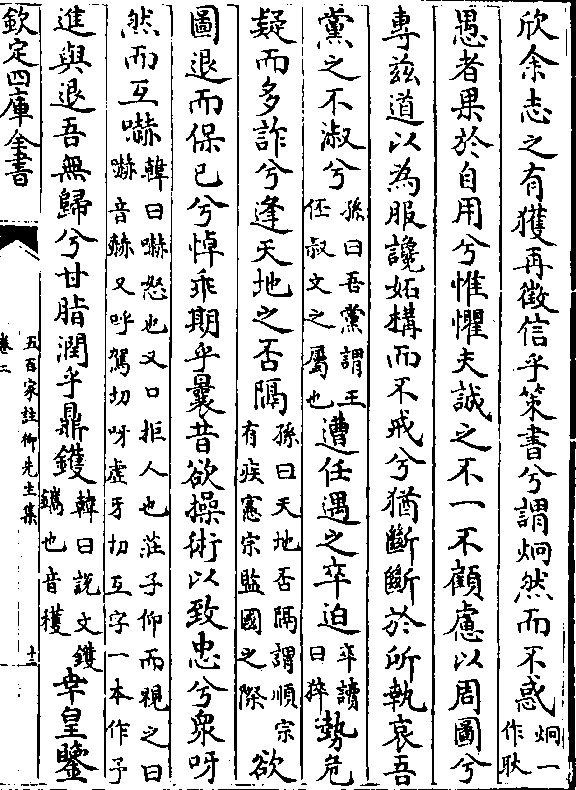 欣余志之有獲再徵信乎策書兮謂炯然而不惑炯一作耿
愚者果於自用兮惟懼夫誠之不一不顧慮以周圖兮
專兹道以為服讒妬構而不戒兮猶斷斷於所執哀吾
黨之不淑兮孫曰吾黨謂王伾叔文之屬也遭任遇之卒迫卒讀曰猝勢危
疑而多詐兮逢天地之否隔孫曰天地否隔謂順宗有疾憲宗監國之際欲
圖退而保已兮悼乖期乎曩昔欲操術以致忠兮衆呀
然而互嚇韓曰嚇怒也又口拒人也莊子仰而視之曰嚇音赫又呼駕切呀虚牙切互字一本作予
進與退吾無歸兮甘脂潤乎鼎鑊韓曰說文鑊鐫也音穫幸皇鑒
欽定四庫全書
五百家註柳先生集
卷二
十三